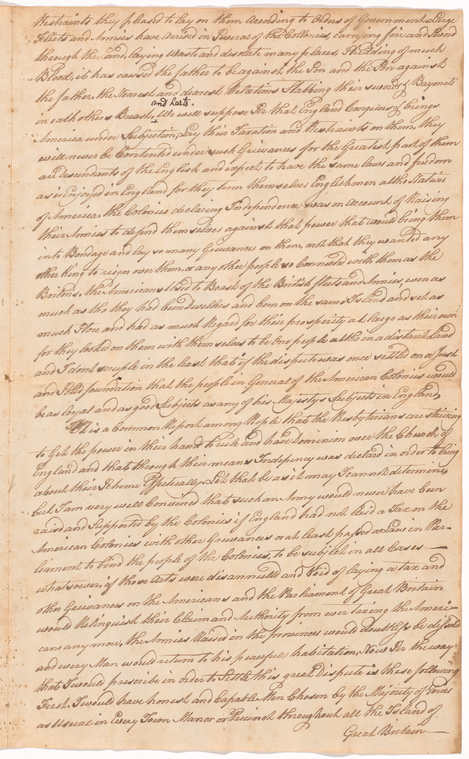 Restraints they pleased to lay on them According to Orders of Government, Large
Fleets and Armies have Arised in Several of the Colonies, carrying fire and Sword
through the Land, laying Waste and desolate many places, Shedding of much
Blood, it has caused the father to be against the Son and the Son against
the father, the Nearest and dearest Relations Stabbing their Swords, Bayonets
and harts,
in each others Breasts, We will suppose Sir that England Conquers & brings
America under Subjection, Lay their Taxation and Restraints on them, they
will never be Contented under such Grievances for the Greatest part of them
are descendants of the English and expect to have the same laws and freedom
as is injoyed in England, for they term themselves Englishmen altho Natives
of America, the Colonies declaring Independence was on Account of Raising
their Armies to defend themselves against that power that would bring them
into Bondage and lay so many Grievances on them, not that they wanted any
other king to reign over them or any other people so Connected with them as the
Britons, the Americans Used to Boast of the British fleets and Armies, even as
much as tho they had been dwellers and born on the same Island and set as
much Store and had as much Regard for their prosperity at large as their own
for they looked on them with themselves to be One people altho in a distant Land
and I dont scruple in the least that if the dispute was once settled on a Just
and Solid foundation that the people in General of the American Colonies would
be as loyal and as good Subjects as any of his Majestys Subjects in England,
It is a Common Report among People that the Presbyterians are striving
to Get the power in their hands to rule and have dominion over the Church of
England and that through their means Indepency was declard in order to bring
about their Scheme Effectually, Let that be as it may I cannot determine
but I am very well Convinced that such an Army would never have been
raised and Supported by the Colonies if England had not laid a Tax on the
American Colonies with other Grievances or at least passed a Law in Par-
liament to bind the people of the Colonies, to be subject in all Cases
whatsoever, if those Acts were disannulled and Void of laying a tax and
other Grievances on the Americans and the Parliament of Great Britain
would Relinquish their Claim and Authority from ever taxing the Ameri-
cans any more, the Armies Raised in the provinces would doubtless be
and every Man would return to his peaceful habitation, Now Sir the way
that I would prescribe in order to Settle this great Dispute is these following
First. I would have honest and Capable Men Chosen by the Majority of Votes
as Usual in Every Town Manor or Precinct throughout all the Island of
Great Britain